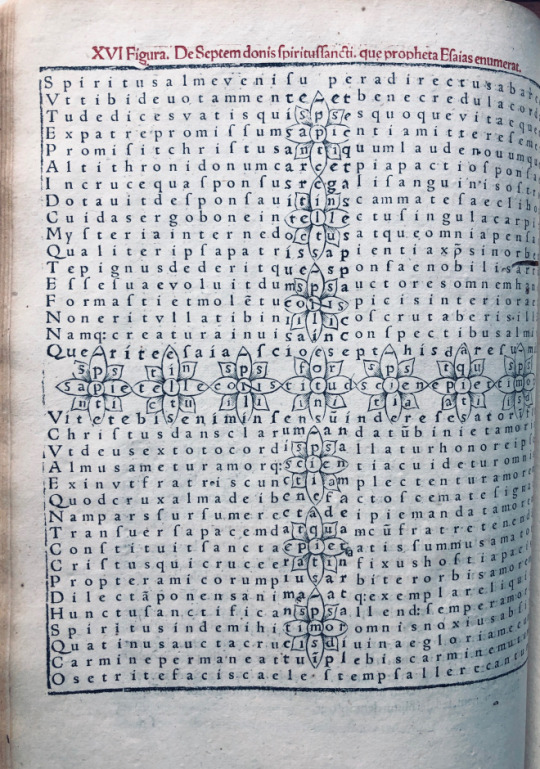 XVI Figura. De Septem donis spiritussancti. que propheta Esaias enumerat.
Spiritusalmevenisu peradirectusabarce
Vttibideuotammente etbenecredulacord
Tudedicesvatisqui spsesquoquevitaeque
Expatrepromissumsapientiamittereseme
Promisitchristusantiquumlaudenouumqu
Altithronidonumcareetpiapactiosponsa
Incrucequasponsusregalisanguinisostr
Dotauitdesponsauitinscammatesaecliho
Cuidasergoboneintellectusingulacarpi
Mysteriainternedoctusatqueomniapensa
Qualiteripsapatrissapientiaxp̄sinorbe
Tepignusdederitqueasponsaenobilisarr
Essesuaevoluitdumspsauctoresomnemh
Formastietmolētuconsspicisinteriorar
Noneritvllatibiniilincoscrutaberis
Namq:creaturainuisainconspectibusalmi
Queriteesaiascioesepthisdaresum
sapietelleconsitudscienpietimo
Vitetebiseniminsensūineresesator
Christusdansclarumandatūbinietamor
Vtdeusextotocordispsallaturhonoreip
Almusameturamorq:scientiacuideturomni
Exinvtfratriscunctiamplectenturamore
Quodcruxalmadeibenefactoscematesigna
Namparssursumetcetadeipiemandatamore
Transuersapacemdatquamcūfratretenend
Constituitsanctaepietatissummusamato
Cristusquicruceerfixushoftiapace
Propteramicorumpiusarbiterorbisamore
Dilectāponensanimaatq:exemplareliqui
Hunctusanctificanspsallend:semperamor
Spiritusindemihitimoromnisnoxiusabsi
Quatinusauctacruceisdiuinaegloriamec
Carminepermaneattuiplebiscarminemutu
Osetritefaciscaelestempsallerecantu